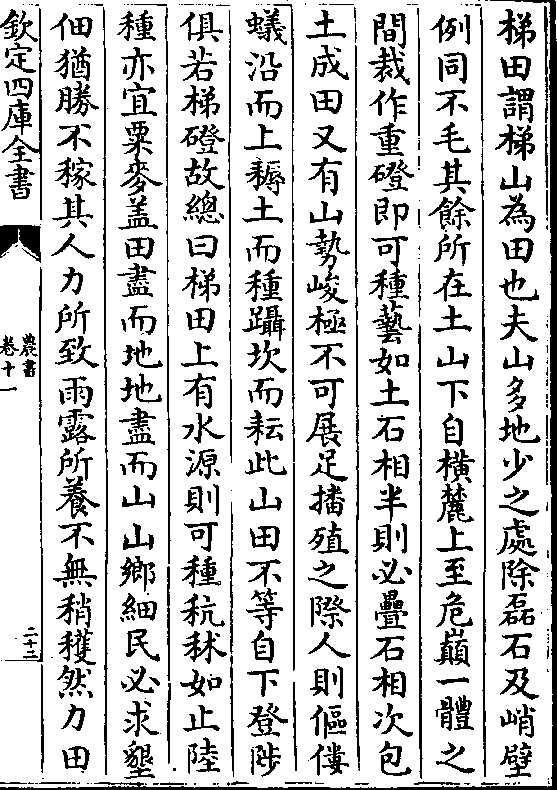 梯田謂梯山為田也夫山多地少之處除磊石及峭壁
例同不毛其餘所在土山下自橫麓上至危巔一體之
間裁作重磴即可種藝如土石相半則必疊石相次包
土成田又有山勢峻極不可展足播殖之際人則傴僂
蟻沿而上耨土而種躡坎而耘此山田不等自下登陟
俱若梯磴故總曰梯田上有水源則可種秔秫如止陸
種亦宜粟麥盖田盡而地地盡而山山鄉細民必求墾
佃猶勝不稼其人力所致雨露所養不無稍穫然力田
欽定四庫全書
農書
卷十一
二十三